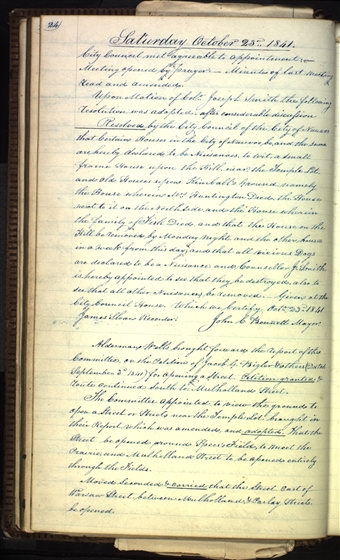 24
Saturday October 23rd 1841.
City Council met agreeable to appointment &
Meeting opened by prayer — Minutes of Last Meeting
Read and Amended.
Upon Motion of Coln. Joseph Smith the following
Resolution was adopted, after considerable discussion
Resolved, by the City Council of the City of Nauvoo
that Certain Houses in the City of Nauvoo, be, and the same
are hereby declared to be Nuisances, to wit a small
frame House upon the Hill, near the Temple Lot
and Old House upon Kimball's Ground, namely
the House wherein Mr. Huntington Died, the House
next to it on the North side, and the House wherein
the family of Fish Died, and that the House on the
Hill be removed by Monday Night, and the other houses
in a week from this day, and that all vicious Dogs
are declared to be a Nuisance and Councillor J. Smith
is hereby appointed to see that they be destroyed, also to
see that all other Nuisances be removed. Given at the
City Council House. Which we Certify. Octr. 23rd 1841
James Sloan Recorder. John C Bennett Mayor.
Alderman Wells brought forward the report of the
Committee on the Petition of Jacob G. Bigler & others, Dated
September 3d for opening a Street. Petition granted &
Route Continued South to Mulholland Street.
The Committee appointed to view the grounds to
open a Street or Streets near the Temple Lot, brought in
their Report which was amended, and adopted. That the
Street be opened around Fields, to meet the
Prairie, and Mulholland Street to be opened entirely
through the Fields.
Moved Seconded & Carried that this Street part of
Warsaw Street between Mulholland & Parley Streets
be opened.